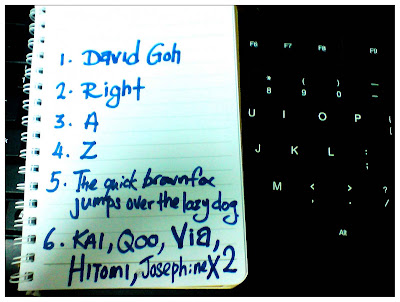 1. David Goh
2. Right
3. A
4. Z
5. The quick brown fox
jumps over the lazy dog
6. KAI, QOO, Via,
HITOMI, Josephine X2
F6 F7 F8 F9
* ( ) —
8 9 0 -
U I O P [
J K L : ;
M < > ? , . /
Alt